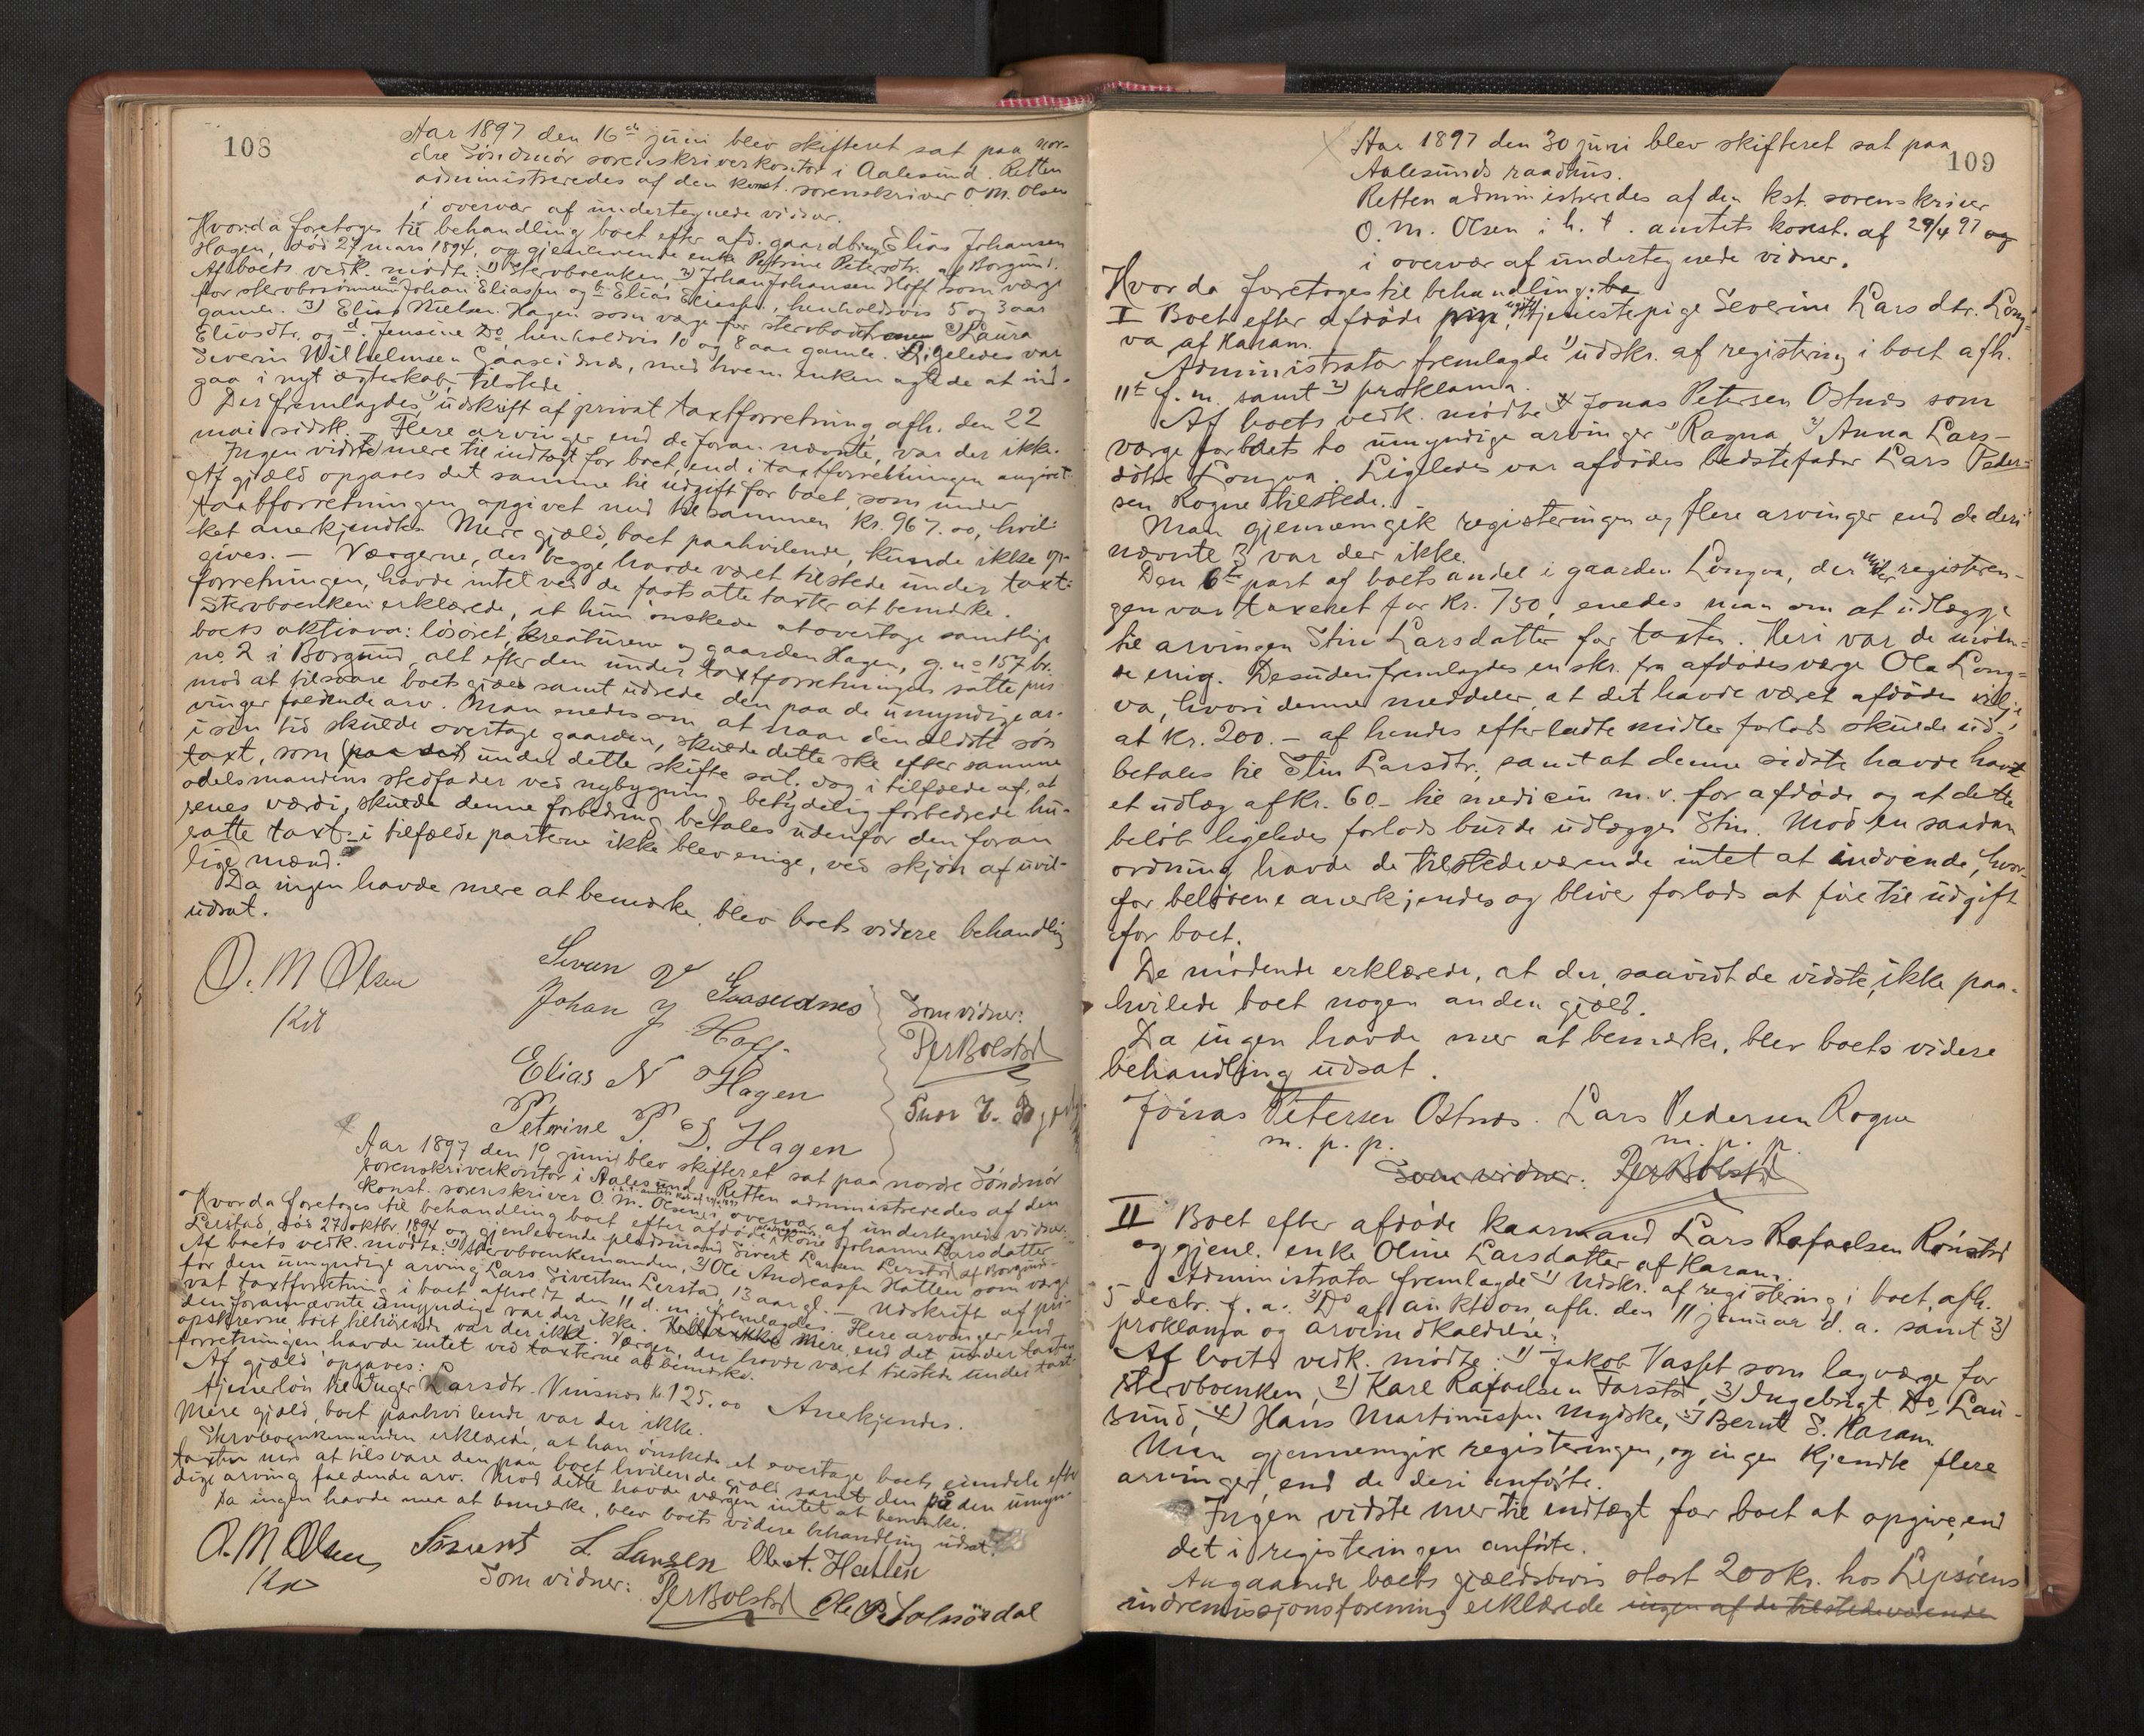 108
Aar 1897 den 16de juni blev skifteret sat paa nor-
dre Söndmör sorenskriverkontor i Aalesund. Retten
administreredes af den konst. sorenskriver O. M. Olsen
i overvær af undertegnede vidner.
Hvorda foretoges til behandling boet efter afd. gaardbrug. Elias Johansen
Hagen, död 27 mars 1894, og gjenlevende enke Petrine Petersdtr. af Borgund.
Af boets vedk. mödte: 1) Sterboenken, 2) Johan Johansen Hoff som værge
for sterbosönnerne a Johan Eliassen og b Elias Eliassen, henholdsvis 5 og 3 aar
gamle. 3) Elias Nielsen Hagen som værge for sterbodötrene c) Laura
Eliasdtr. og d. Jensine Do, henholdsvis 10 og 8 aar gamle. Ligeledes var
Severin Wilhelmsen Gaaseidnes, med hvem enken agtede at ind-
gaa i nyt ægteskab, tilstede.
Der fremlagdes 1) udskrift af privat taxtforretning, afh. den 22
mai sidstl. – Flere arvinger end de foran nævnte, var der ikke.
Ingen vidste mere til indtægt for boet, end i taxtforretningen anfört.
Af gjæld opgaves det samme til udgift for boet, som under
taxtforretningen opgivet med tilsammen kr. 967.00, hvil-
ket anerkjendtes. Mere gjæld, boet paahvilende, kunde ikke op-
gives. – Værgerne, der begge havde været tilstede under taxt-
forretningen, havde intet ved de fastsatte taxter at bemærke.
Sterboenken erklærede, at hun önskede at overtage samtlige
boets aktiva: lösöret, kreaturene og gaarden Hagen, g. no 157 br.
no. 2 i Borgund, alt efter den under taxtforretningen satte pris
mod at tilsvare boets gjæld samt udrede den paa de umyndige ar-
vinger faldende arv. Man enedes om at naar den ældste sön
i sin tid skulde overtage gaarden, skulde dette ske efter samme
taxt, som (paa det) under dette skifte sat. dog i tilfælde af, at
odelsmandens stedfader ved nybygning betydelig forbedrede hu-
senes værdi, skulde denne forbedring betales udenfor den foran
satte taxt – i tilfælde parterne ikke blev enige, ved skjön af uvil-
lige mænd.
Da ingen havde mere at bemærke, blev boets videre behandling
udsat.
O. M Olsen
Kst
Severin V Gaaseidnes
Johan J Hoff.
Elias N Hagen
Petrine P. D. Hagen
Som vidner:
Per Bolstad
Aar 1897 den 19 juni blev skifteret sat paa nordre Söndmör
sorenskriverkontor i Aalesund. Retten administreredes af den
konst. sorenskriver O. M. Olsen i overvær af undertegnede vidner.
Hvorda foretoges til behandling boet efter afdöde kone Johanne Larsdatter
Lerstad, död 27 oktbr. 1894 og gjenlevende pladsmand Sivert Larsen Lerstad af Borgund.
Af boets vedk. mödte: 1) Sterboenkemanden, 2) Ole Andreassen Hatlen som værge
for den umyndige arving Lars Sivertsen Lerstad, 13 aar gl. – Udskrift af pri-
vat taxtforretning i boet afholdt den 11 d. m. fremlagdes. Flere arvinger end
den forannævnte umyndige var der ikke. Mere, end det under taxten
opskrevne, boet tilhörende var der ikke. Værgen, der havde været tilstede under taxt-
forretningen havde intet ved taxterne at bemærke.
Af gjæld opgaves:
tjenerlön til Inger Larsdtr. Vinsnes kr. 125.00 Anerkjendes.
Mere gjæld, boet paahvilende var der ikke.
Sterboenkemanden erklærede, at han önskede at overtage boets eiendele efter
taxten mod at tilsvare den paa boet hvilende gjæld samt den paa den umyn-
dige arving faldende arv. Mod dette havde værgen intet at bemærke.
Da ingen havde mer at bemærke, blev boets videre behandling udsat.
O. M Olsen
Kst
Sivert L. Larsen Ole A. Hatlen
Som vidner: Per Bolstad Ole P. Solnördal
109
Aar 1897 den 30 juni blev skifteret sat paa
Aalesunds raadhus.
Retten administreredes af den kst. sorenskriver
O. M. Olsen i h. t. amtets konst. af 29/4 97 og
i overvær af undertegnede vidner.
Hvorda foretoges til behandling:
I Boet efter afdöde ugift tjenestepige Severine Larsdtr. Long-
va af Haram.
Administrator fremlagde 1) udskr. af registering i boet afh.
11te f. m. samt 2) proklama.
Af boets vedk. mödte Jonas Petersen Ostnes som
værge for boets to umyndige arvinger 1) Ragna, 2) Anna Lars-
dötre Longva. Ligeledes var afdödes bedstefader Lars Peder-
sen Rogne tilstede.
Man gjennemgik registeringen og flere arvinger end de deri
nævnte 3 var der ikke.
Den 6te part af boets andel i gaarden Longva, der under registerin-
gen var taxeret for kr. 750, enedes man om at udlægge
til arvingen Stine Larsdatter for taxten. Heri var de möden-
de enig. Desuden fremlagdes en skr. fra afdödes værge Ole Long-
va, hvori denne meddeler, at det havde været afdöde vilje,
at kr. 200.– af hendes efterladte midler forlods skulde ud-
betales til Stine Larsdtr., samt at denne sidste havde havt
et udlæg af kr. 60– til medicin m. v. for afdöde og at dette
belöb ligeledes forlods burde udlægges Stine. Mod en saadan
ordning havde de tilstedeværende intet at indvende, hvor-
for belöbene anerkjendes og bliver forlods at före til udgift
for boet.
De mödende erklærede, at der, saavidt de vidste, ikke paa-
hvilede boet nogen anden gjæld.
Da ingen havde mer at bemærke, blev boets videre
behandling udsat.
Jonas Petersen Ostnes. Lars Pedersen Rogne
m. p. p. m. p. p.
Som vidner: Per Bolstad
II Boet efter afdöde kaarmand Lars Rafaelsen Rönstad
og gjenl. enke Oline Larsdatter af Haram.
Administrator fremlagde 1) Udskr. af registering i boet, afh.
5 decbr. f. a. 2) Do af auktion, afh. den 11 januar d. a. samt 3)
proklama og arveindkaldelse.
Af boets vedk. mödte: 1) Jakob Vasset som lagværge for
Sterboenken, 2) Karl Rafaelsen Farstad, 3) Ingebrigt Do Lau-
sund, 4) Hans Martinussen Mydske, 5) Bernt S. Haram
Man gjennemgik registeringen, og ingen kjendte flere
arvinger, end de deri anförte.
Ingen vidste mer til indtægt for boet at opgive, end
det i registeringen anförte.
Angaaende boets gjældsbevis stort 200 kr. hos Lepsöens
indremissjonsforening erklærede ingen af de tilstedeværende